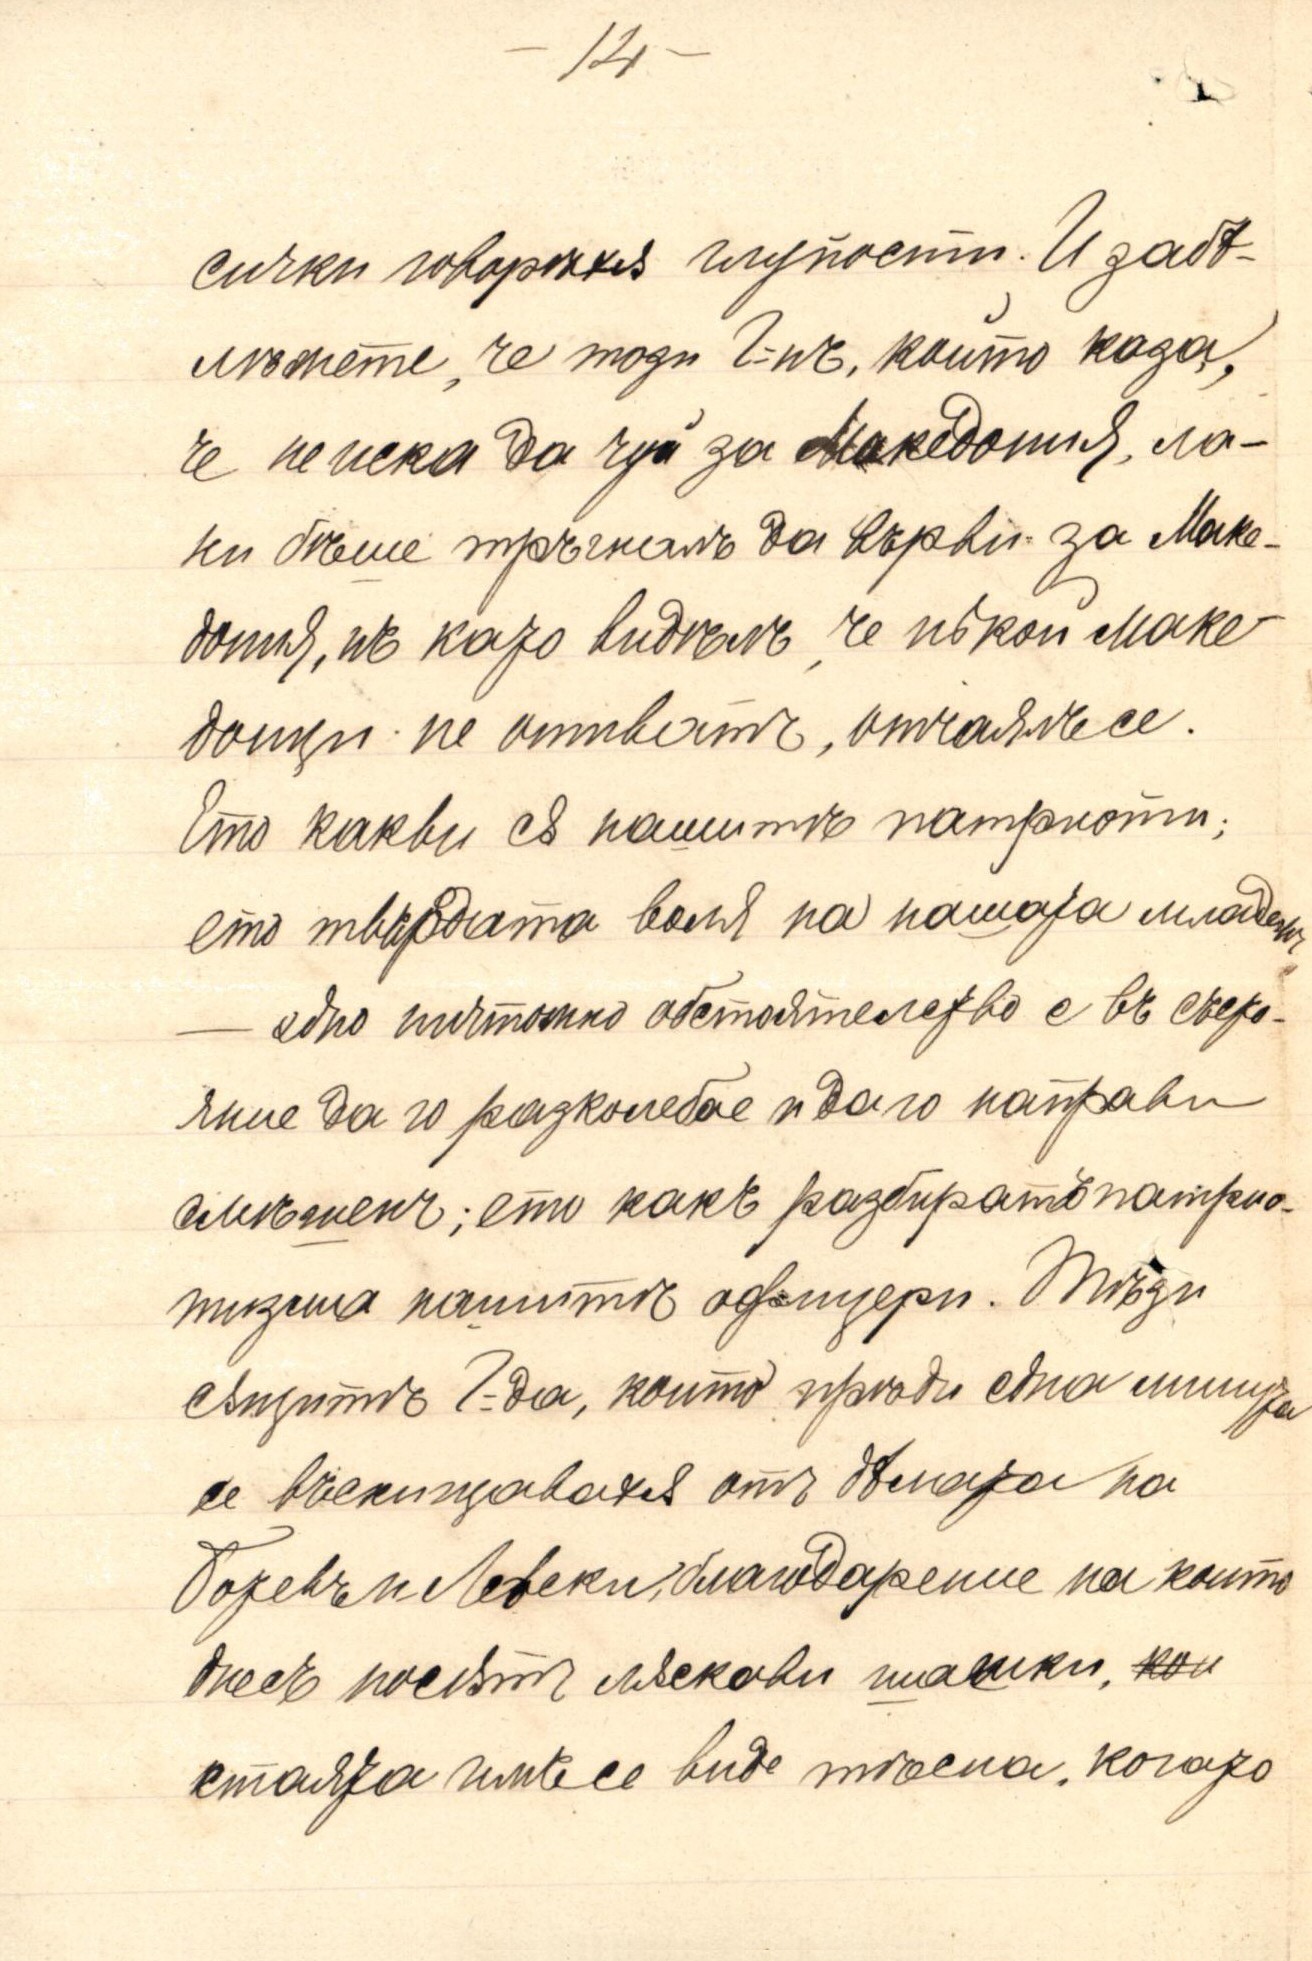 – 14 –
сички говорихѫ глупости. И забѣ-
лѣжете, че този Г-нъ, който каза,
че не иска да чуй за Македония, ма-
ки бѣше тръгналъ да върви за Маке-
дония, нъ като видѣлъ, че нѣкои маке
донци не отиватъ, отчаялъ се.
Ето какви сѫ нашитѣ патриоти;
ето твърдата воля на нашата младежъ
— едно ничтожно обстоятелство е въ състо-
яние да го разколебае и да го направи
смѣшенъ; ето какъ разбиратъ патрио-
тизма нашитѣ офицери. Тѣзи
сѫщитѣ Г-да, които прѣди една минута
се въсхищавахѫ отъ дѣлата на
Ботевъ и Левски, благодарение на които
днесъ носѭтъ лъскави шашки, кои
стаята имъ се виде тѣсна, когато